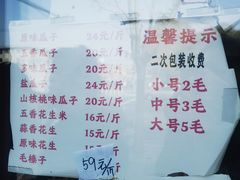 原味瓜子 26元/斤
五香瓜子 20元/斤
多味瓜子 20元/斤
盐瓜子 24元/斤
山核桃味瓜子 20元/斤
五香花生米 16元/斤
蒜香花生 15元/斤
原味花生 15元/斤
毛榛子 59元/斤
温馨提示
二次包装收费
小号2毛
中号3毛
大号5毛